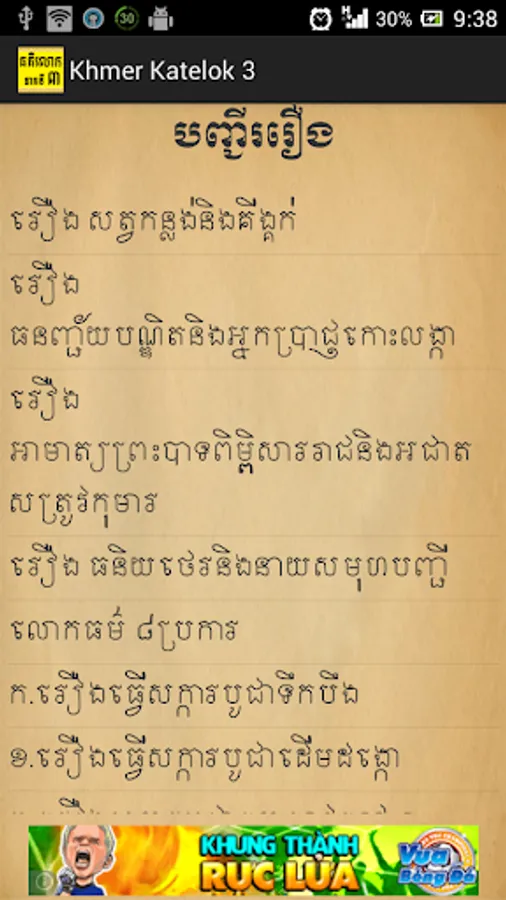 30 30% 9:38
គតិលោក
ភាគទី ៣
Khmer Katelok 3
បញ្ជីររឿង
រឿង សត្វកន្លង់និងគីង្គក់
រឿង
ធនញ្ជ័យបណ្ឌិតនិងអ្នកប្រាជ្ញកោះលង្កា
រឿង
អាមាត្យព្រះបាទពិម្ពិសាររាជនិងអជាត
សត្រូវកុមារ
រឿង ធនិយថេរនិងនាយសមុហបញ្ជី
លោកធម៌ ៨ប្រការ
ក.រឿងធ្វើសក្ការបូជាទឹកបឹង
ខ.រឿងធ្វើសក្ការបូជាដើមដង្កោ
KHUNG THÀNH
RỰC LỬA
Vua
Bóng Đá